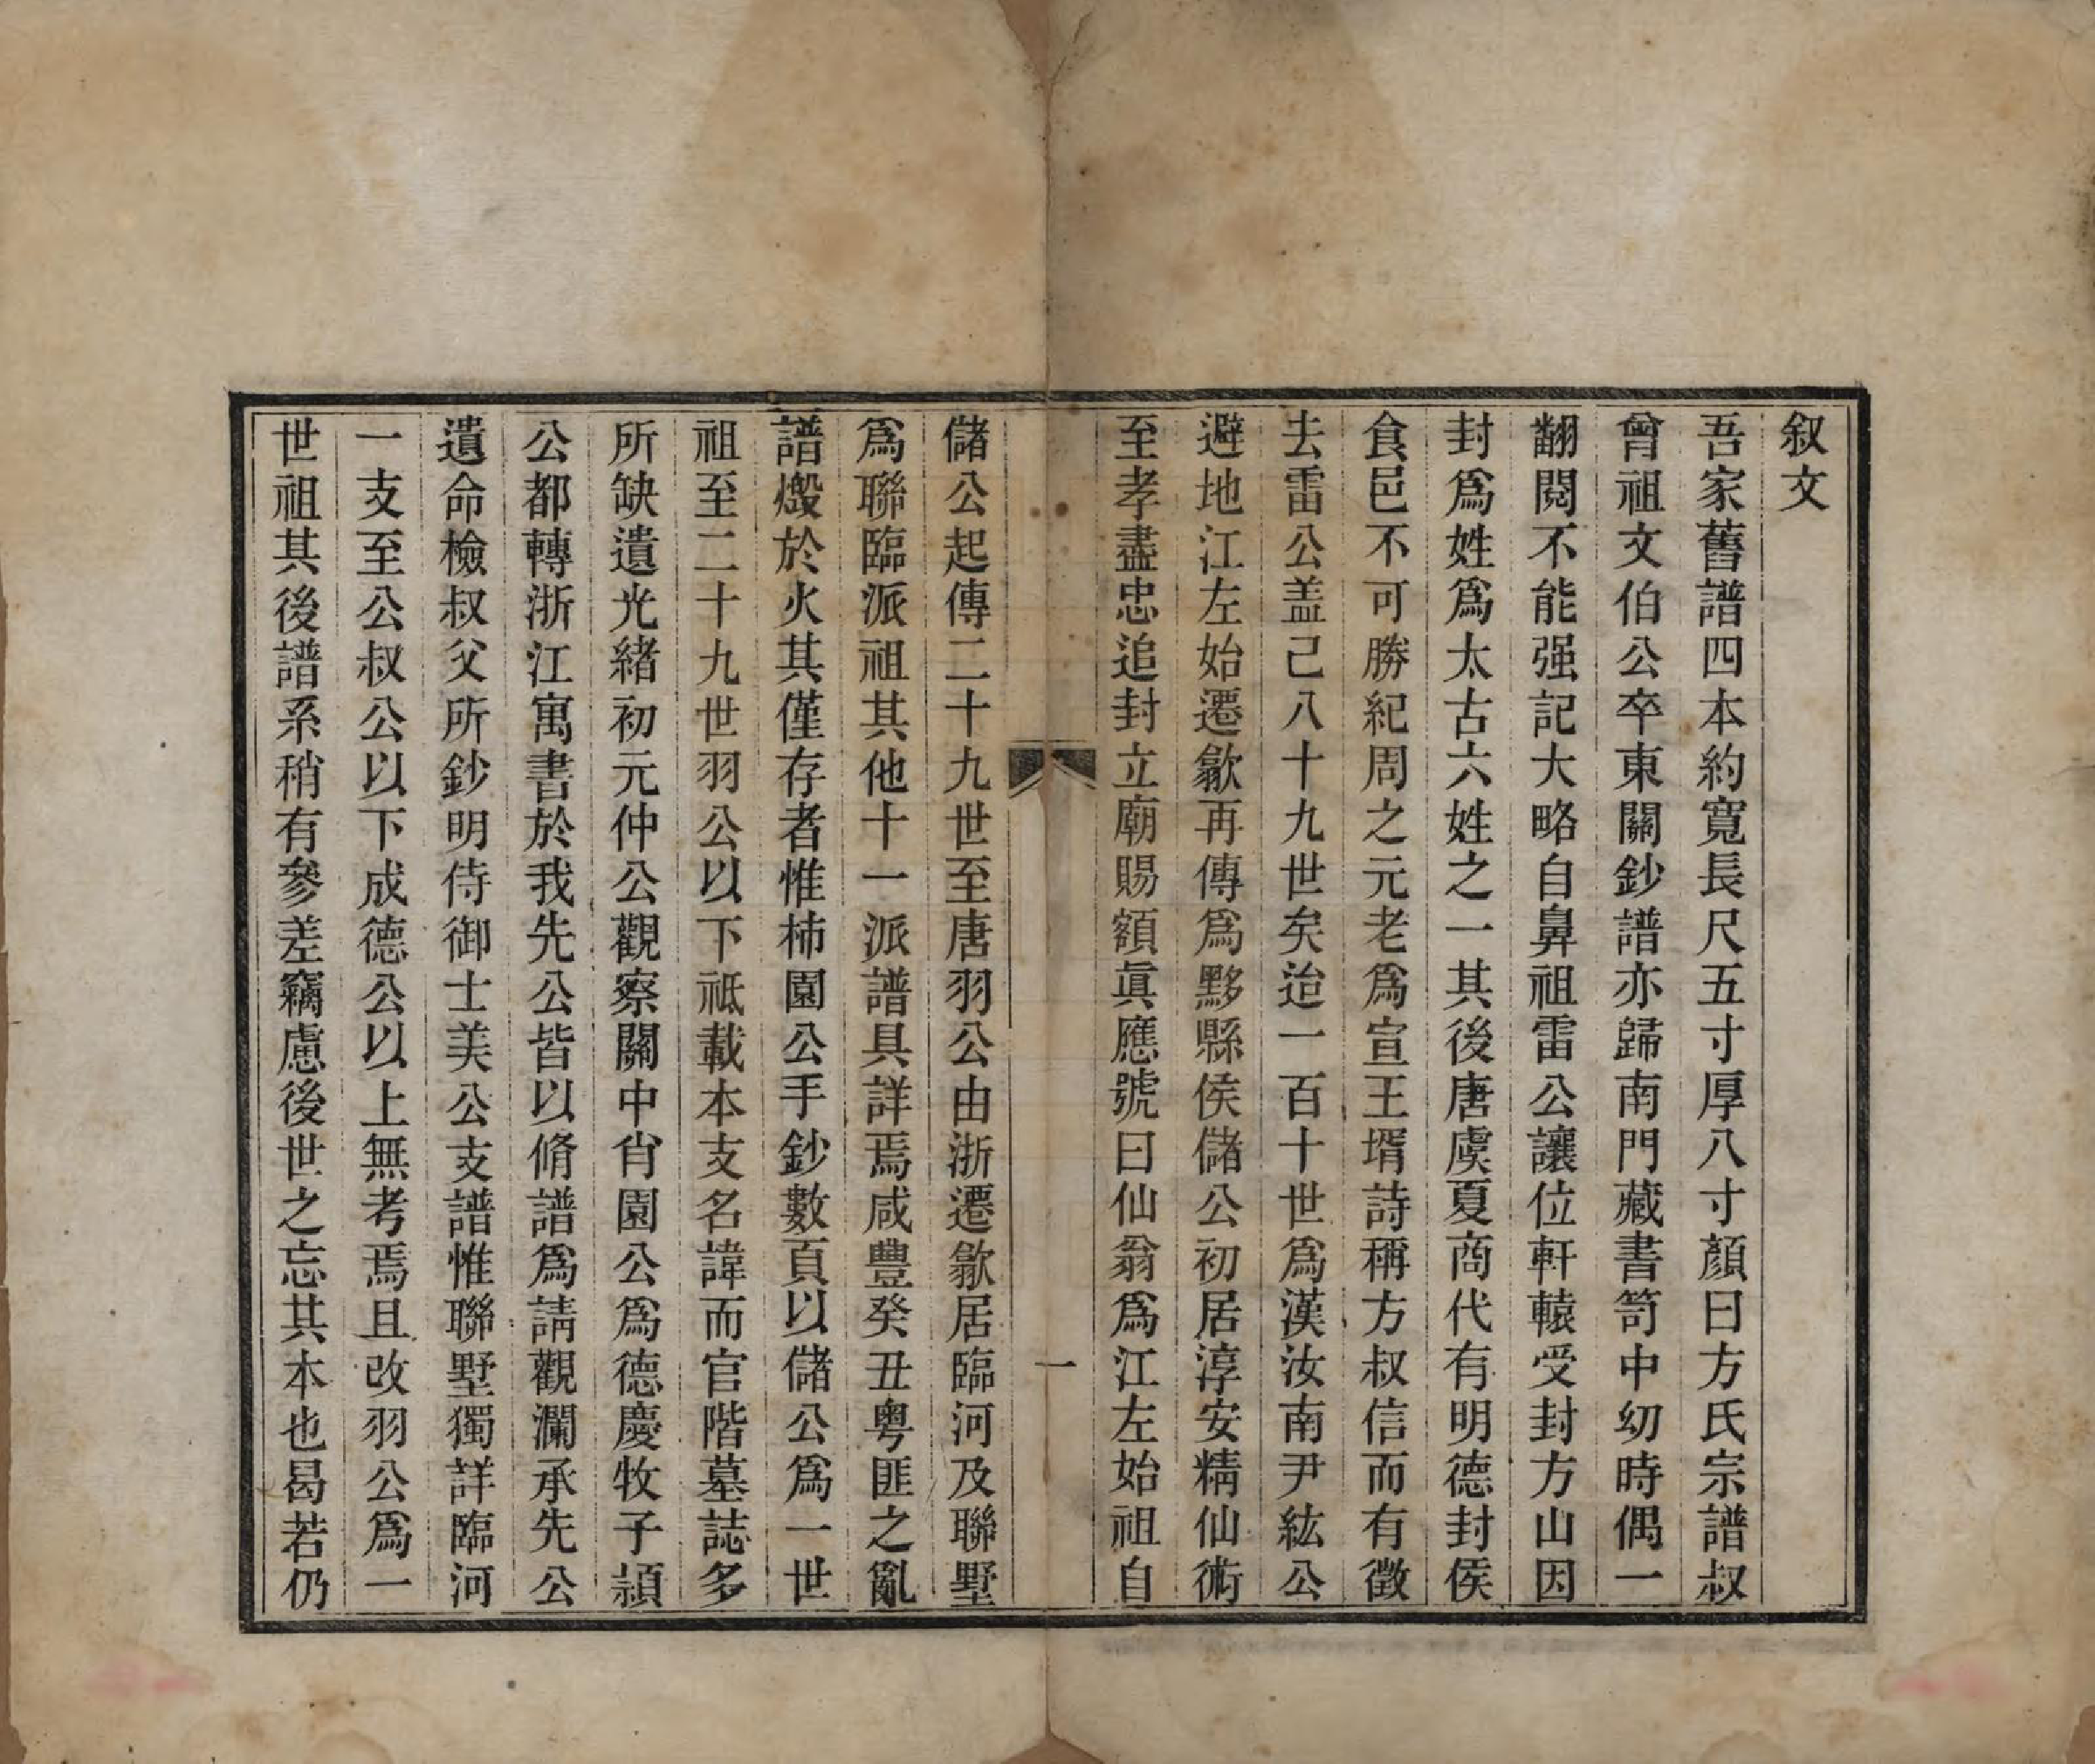 叙文
吾家舊譜四本約寬長尺五寸厚八寸顏曰方氏宗譜叔
曾祖文伯公卒東關鈔譜亦歸南門藏書笥中幼時偶一
翻閱不能强記大略自鼻祖雷公讓位軒轅受封方山因
封爲姓爲太古六姓之一其後唐虞夏商代有明德封侯
食邑不可勝紀周之元老爲宣王壻詩稱方叔信而有徵
去雷公盖己八十九世矣迨一百十世爲漢汝南尹紘公
避地江左始遷歙再傳爲黟縣侯儲公初居淳安精仙術
至孝盡忠追封立廟賜額眞應號曰仙翁爲江左始祖自
一
儲公起傳二十九世至唐羽公由浙遷歙居臨河及聯墅
爲聯臨派祖其他十一派譜具詳焉咸豐癸丑粤匪之亂
譜燬於火其僅存者惟柿園公手鈔數頁以儲公爲一世
祖至二十九世羽公以下祗載本支名諱而官階墓誌多
所缺遺光緒初元仲公觀察關中肖園公爲德慶牧子潁
公都轉浙江寓書於我先公皆以脩譜爲請觀瀾承先公
遺命檢叔父所鈔明侍御士美公支譜惟聯墅獨詳臨河
一支至公叔公以下成德公以上無考焉且改羽公爲一
世祖其後譜系稍有參差竊慮後世之忘其本也曷若仍